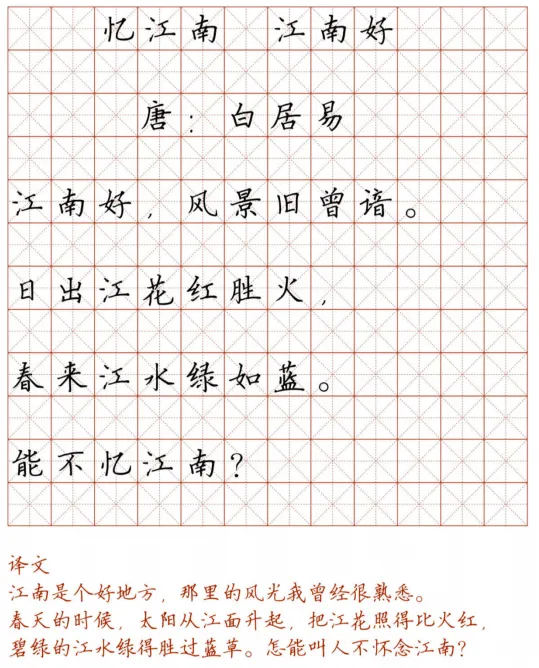 忆江南 江南好
唐：白居易
江南好，风景旧曾谙。
日出江花红胜火，
春来江水绿如蓝。
能不忆江南？
译文
江南是个好地方，那里的风光我曾经很熟悉。
春天的时候，太阳从江面升起，把江花照得比火红，
碧绿的江水绿得胜过蓝草。怎能叫人不怀念江南？